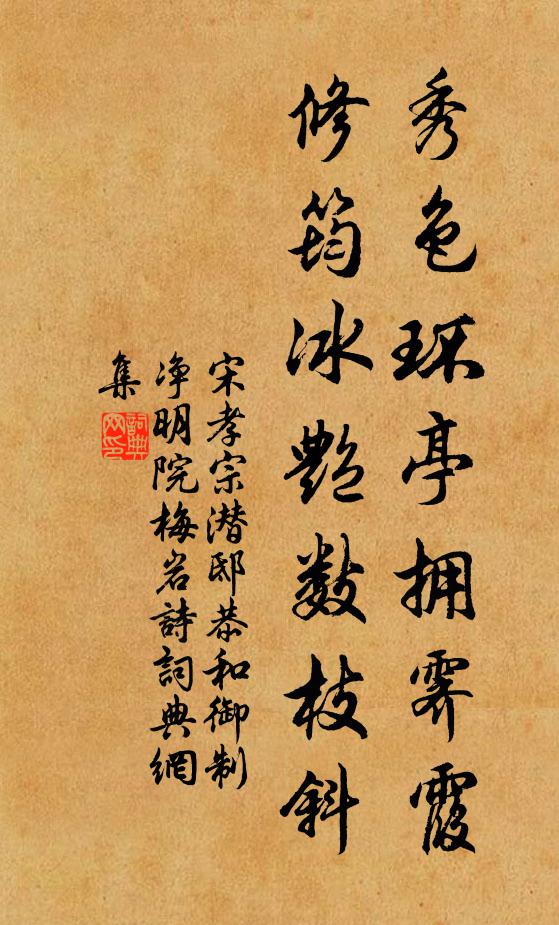 秀色环亭拥霁霞
修筠冰艳数枝斜
宋孝宗潜邸恭和御制
净明院梅岩詩詞典網
集
詞典
网印